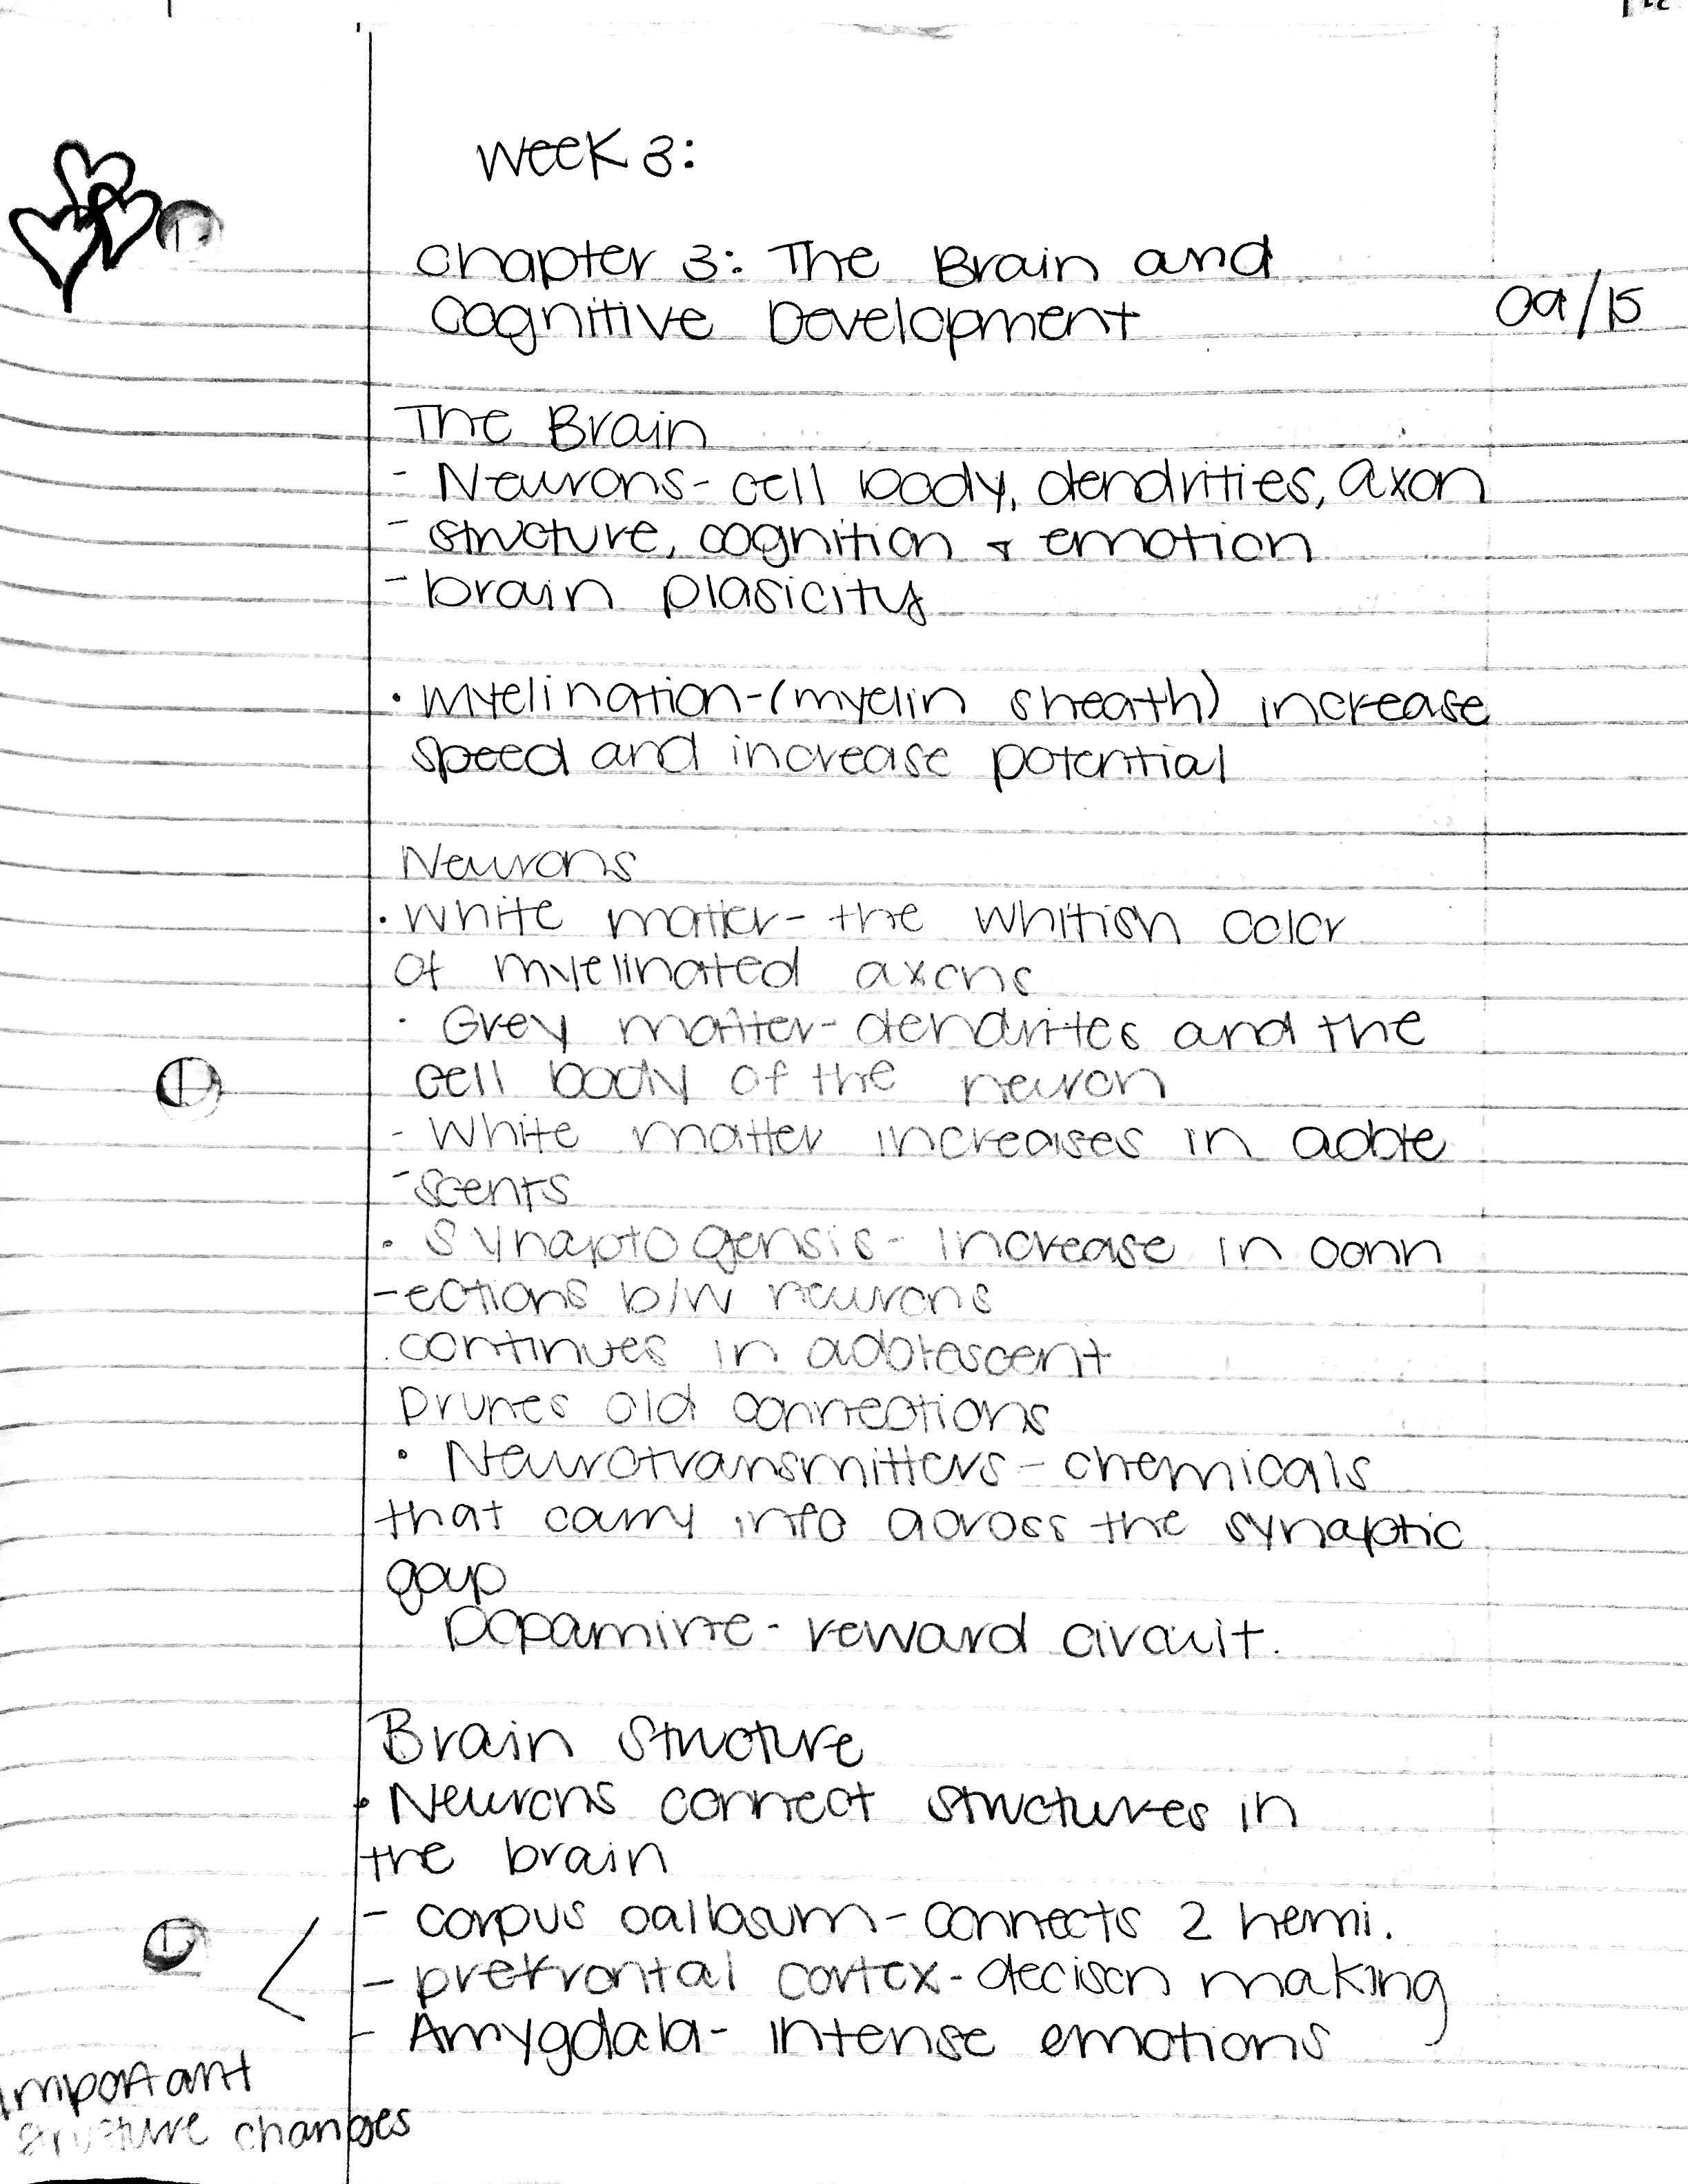 Week 3:
Chapter 3: The Brain and
Cognitive Development
09/15
The Brain
- Neurons- cell body, dendrities, axon
- structure, cognition + emotion
- brain plasicity
• Myelination-(myelin sheath) increase
speed and increase potential
Neurons
• White matter- the whitish color
of myelinated axons
• Grey matter- dendrites and the
cell body of the neuron
- White matter increases in adole
-scents
• Synaptogensis- increase in conn
-ections b/w neurons
. continues in adolescent
prunes old connections
• Neurotransmitters- chemicals
that carry info across the synaptic
gap
Dopamine- reward circuit.
Brain structure
• Neurons connect structures in
the brain
- corpus callosum- connects 2 hemi.
- prefrontal cortex- decison making
- Amygdala- intense emotions
important
structure changes